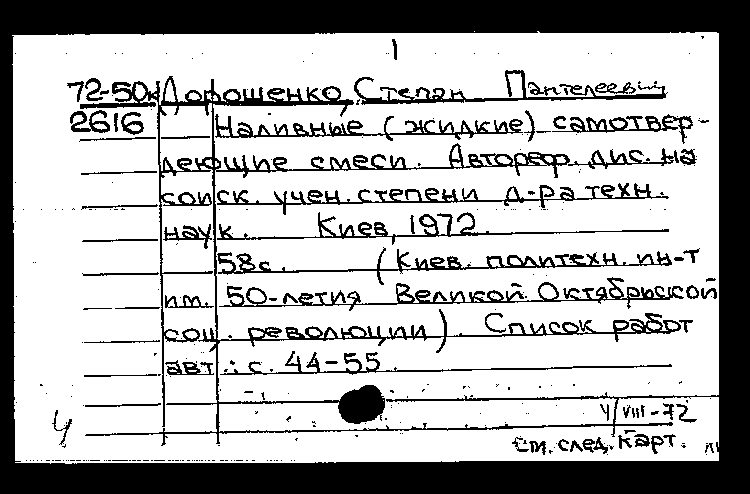 1
72-50к Дорошенко, Степан Пантелеевич
2616 Наливные (жидкие) самотвер-
деющие смеси. Автореф. дис. на
соиск. учен. степени д-ра техн.
наук. Киев, 1972.
58с. (Киев. политехн. ин-т
им. 50-летия Великой Октябрьской
соц. революции). Список работ
авт.: с. 44-55.
У/VIII-72
Ч см. след. карт.